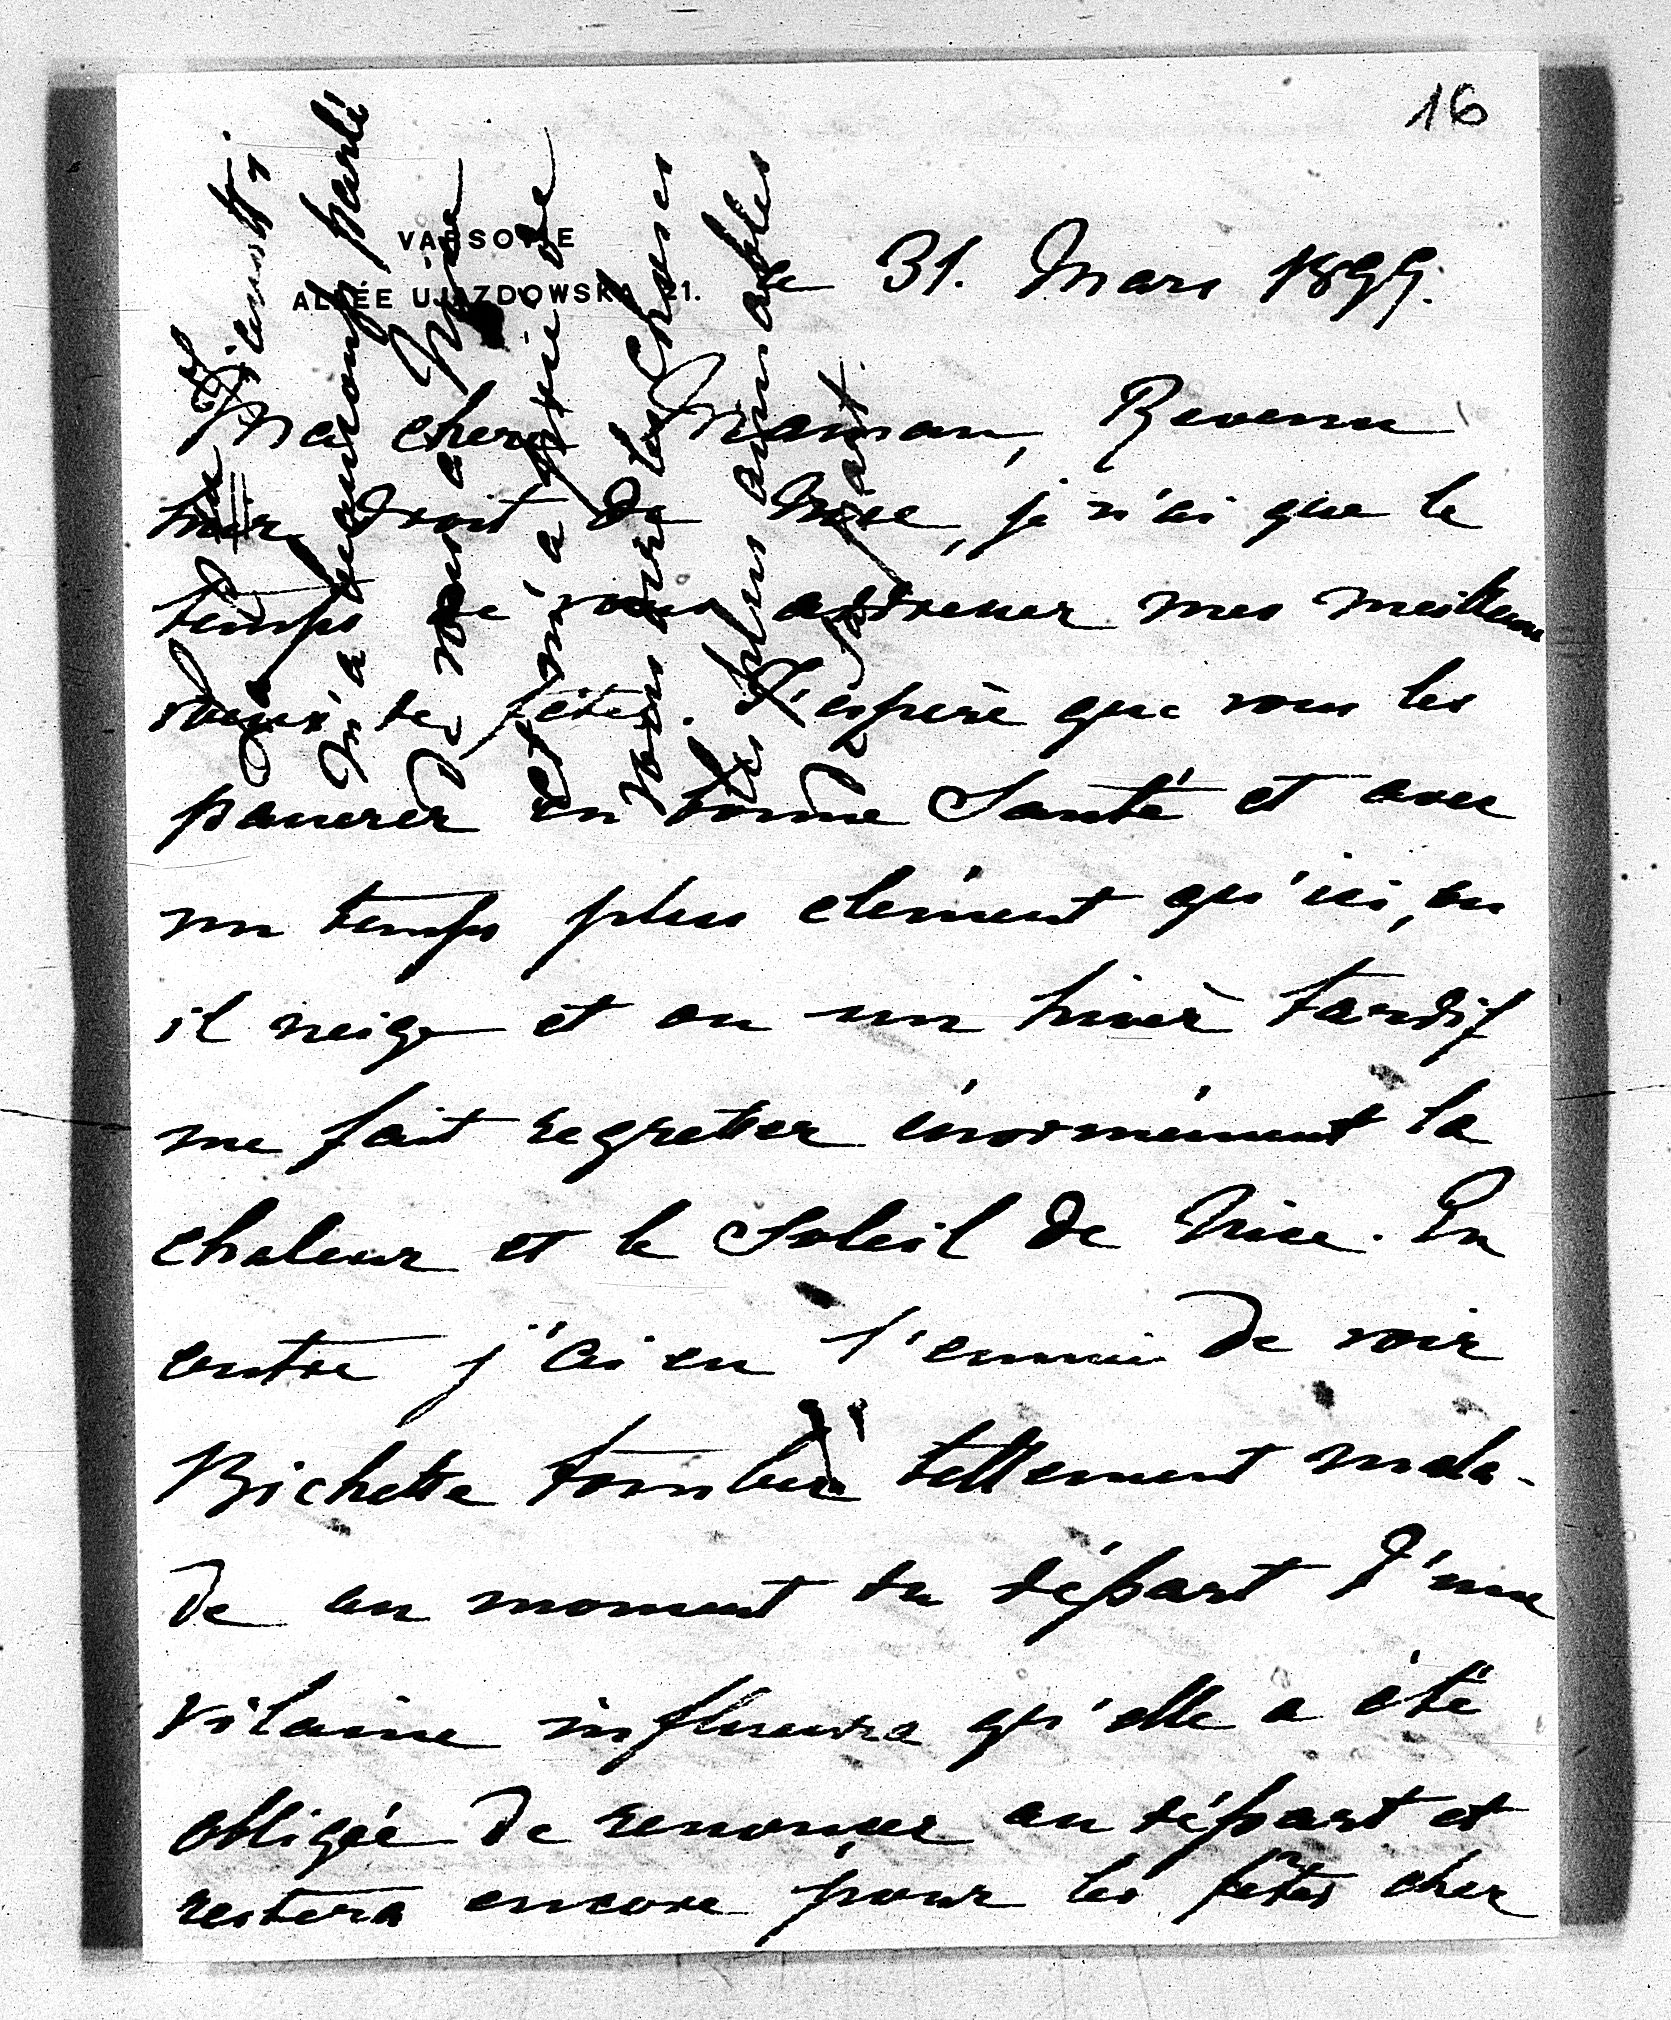 16
VARSOVIE
ALLÉE UJAZDOWSKA 21.
le 31. Mars 1899.
Ma chere Maman, Revenu
hier droit de Nice, je n'ai que le
temps de vous adresser mes meilleurs
voeux de fêtes. J'espère que vous les
passerez en bonne Santé et avec
un temps plus clément qu'ici, ou
il neige et ou un hiver tardif
me fait regretter énormément la
chaleur et le Soleil de Nice. En
outre j'ai eu l'ennui de voir
Bichette tombée tellement mala-
de au moment du départ d'une
vilaine influenza qu'elle a été
obligée de renoncer au départ et
restera encore pour les fêtes chez
m'a beaucoup parlé
de vous a Nice
et m'a prié de
vous dire les choses
les plus aimables